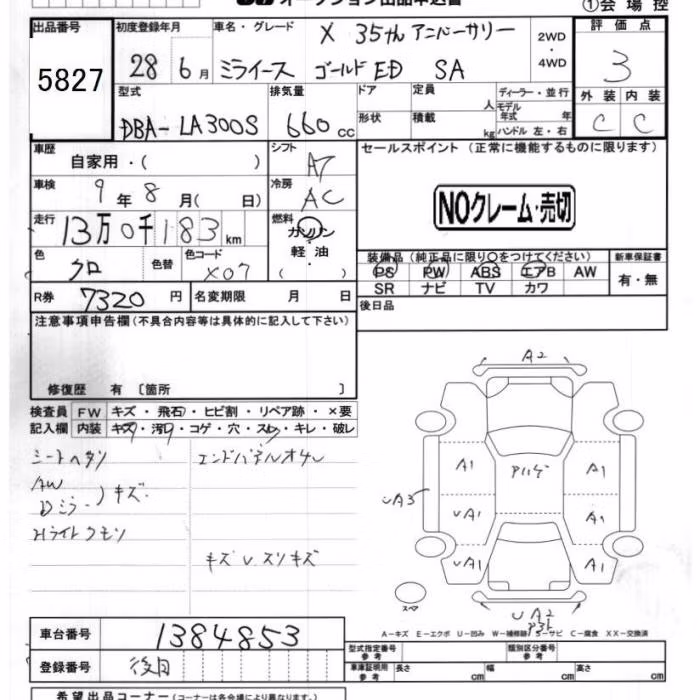 オークション出品申込書 ①会場控
出品番号 初度登録年月 車名・グレード X 35th アニバーサリー 2WD 評価点
5827 28 6月 ミライース ゴールドED SA ・4WD 3
型式 排気量 ドア 定員 人 ディーラー・並行 外装 内装
DBA-LA300S 660 cc 形状 積載 kg モデル年式 年 ハンドル 左・右 C C
車歴 自家用・( ) シフト AT セールスポイント (正常に機能するものに限ります)
車検 9年8月( 日) 冷房 AC NOクレーム・売切
走行 13万0千183km 燃料 ガソリン
軽油
( ・ )
色 クロ 色替 色コード X07 装備品 (純正品に限り○をつけてください) 新車保証書
PS PW ABS エアB AW 有・無
SR ナビ TV カワ
R券 7320円 名変期限 月 日 後日品
注意事項申告欄(不具合内容等は具体的に記入して下さい)
修復歴 有 〔箇所 〕
検査員 FW キズ・飛石・ヒビ割・リペア跡・×要
記入欄 内装 キズ・汚レ・コゲ・穴・スレ・キレ・破レ
シートヘタリ エンドパネルオサレ
AW
Dミラー )キズ
Hライトクモリ
キズUスリキズ
A2
A1 アハゲ A1
UA3 UA1 A1
UA1 A1
スペア UA2
A-キズ E-エクボ U-凹み W-補修跡 S-サビ C-腐食 XX-交換済
車台番号 1384853
登録番号 後日
型式指定番号 参考 類別区分番号 参考
車庫証明用 参考 長さ cm 幅 cm 高さ cm
希望出品コーナー (コーナーは各会場により異なります。)